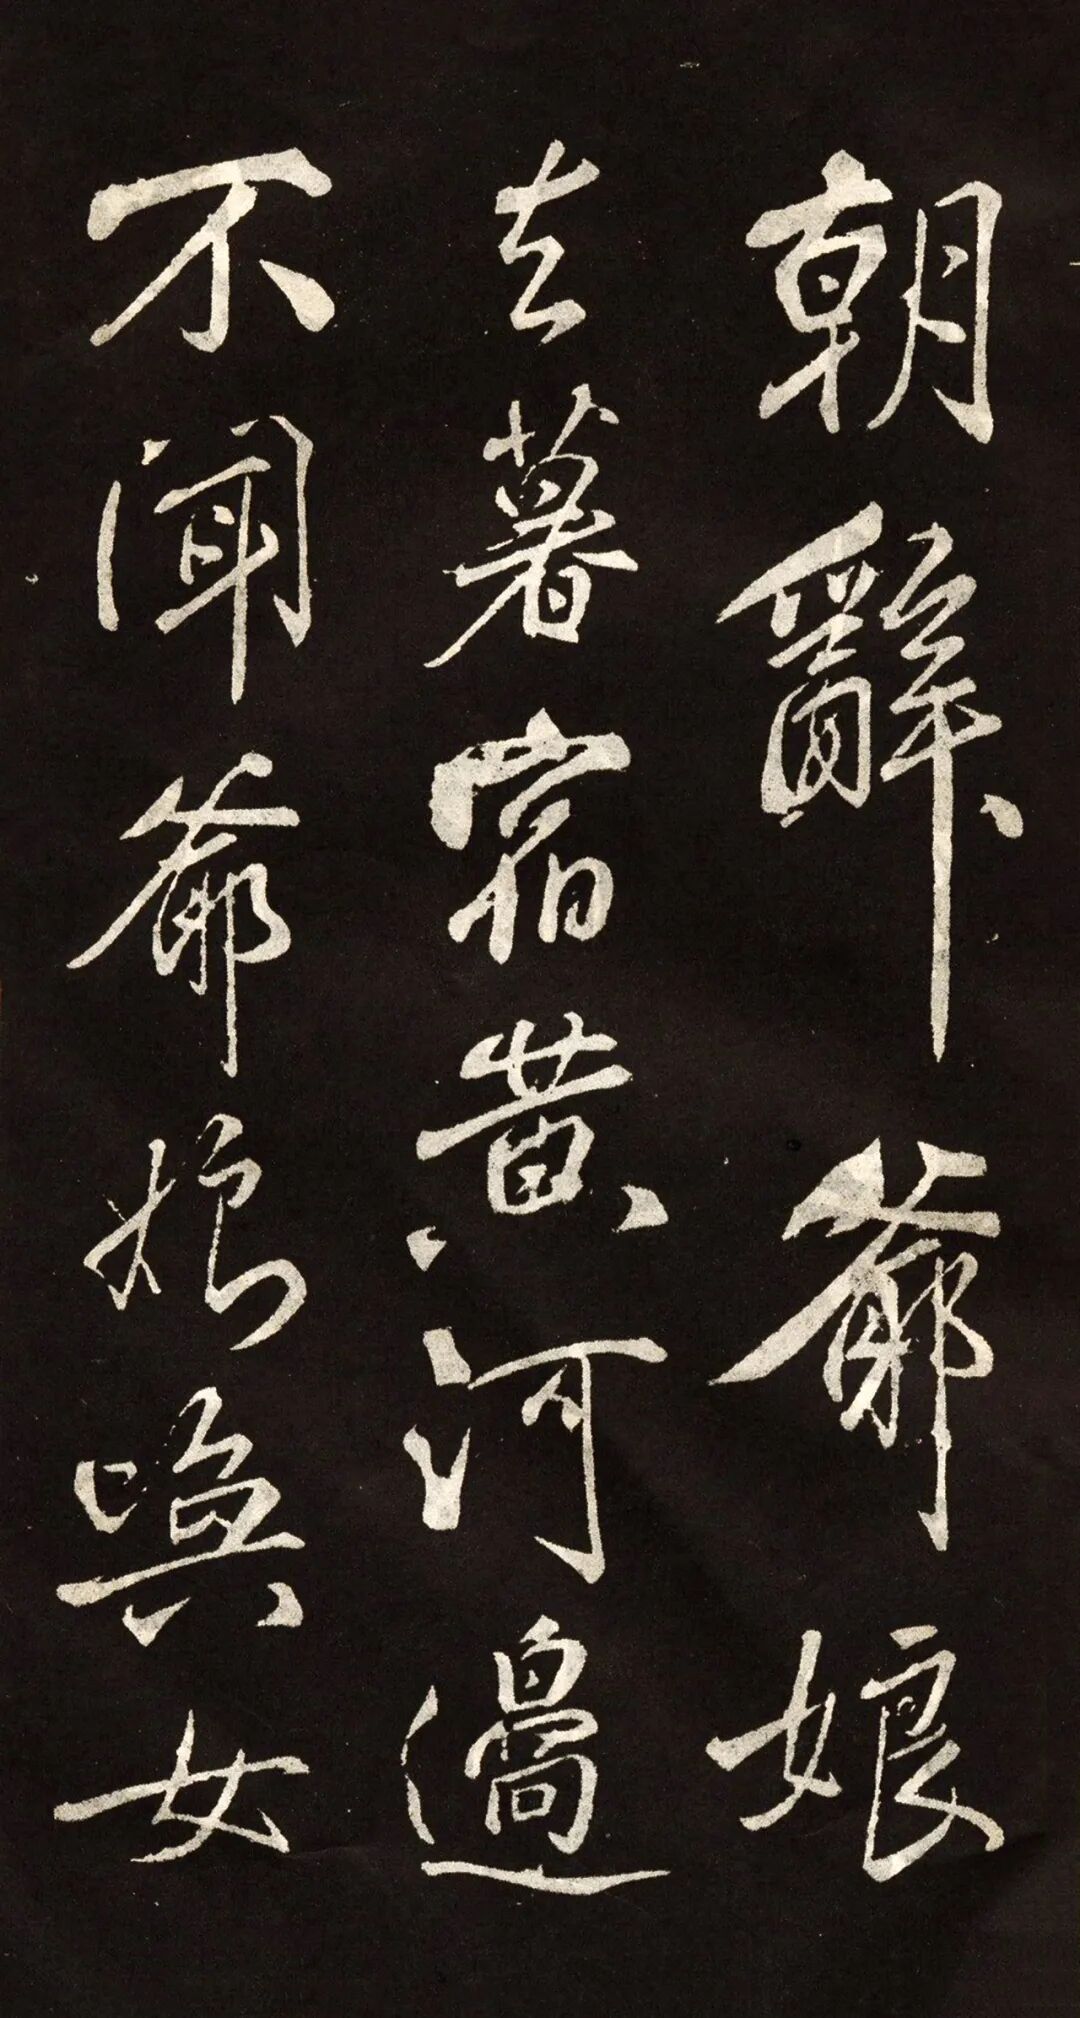 朝辭爺孃
去暮宿黄河邊
不聞爺孃喚女